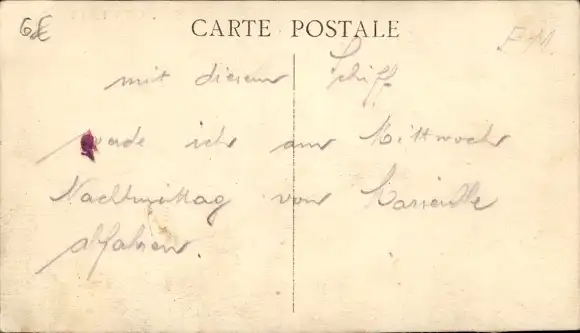 6€
CARTE POSTALE
F-M.
mit diesem Schiff
werde ich am Mittwoch
Nachmittag von Marseille
abfahren.